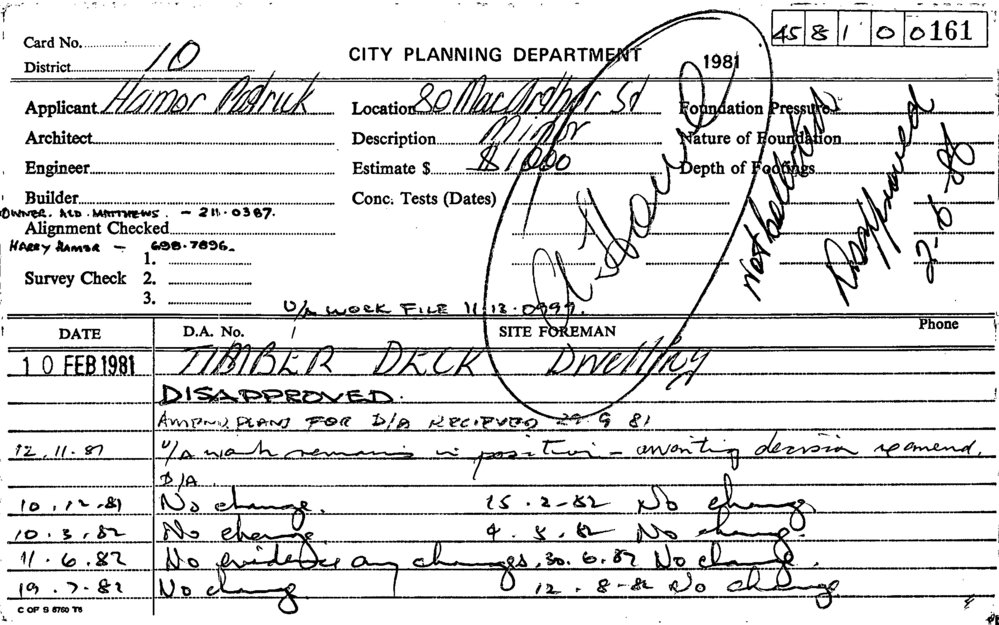 45 8 1 0 0161
Card No.
District 10
CITY PLANNING DEPARTMENT 1981
Applicant Hamor Patrick
Location 80 MacArthur St
Foundation Pressure
Architect
Description Minor
Nature of Foundation
Engineer
Estimate $ $1000
Depth of Footings
Builder
Conc. Tests (Dates)
OWNER. ALD. MATTHEWS. - 211.0387.
Alignment Checked
HARRY HAMOR - 698.7896.
1.
Survey Check 2.
3.
Disapproved
2-6-88
U/A WORK FILE 11.13.0999.
DATE D.A. No. SITE FOREMAN Phone
10 FEB 1981 TIMBER DECK Dwelling
DISAPPROVED.
AMEND PLANS FOR D/A RECIEVED 29 9 81
12.11.81 U/A work remains in position - awaiting decision re amend.
D/A.
10.12.81 No change. 15.2-82 No change.
10.3.82 No change. 4.5.82 No change.
11.6.82 No evidence any changes. 30.6.82 No change.
19.7.82 No change 12.8-82 No change
C OF S 8760 T6